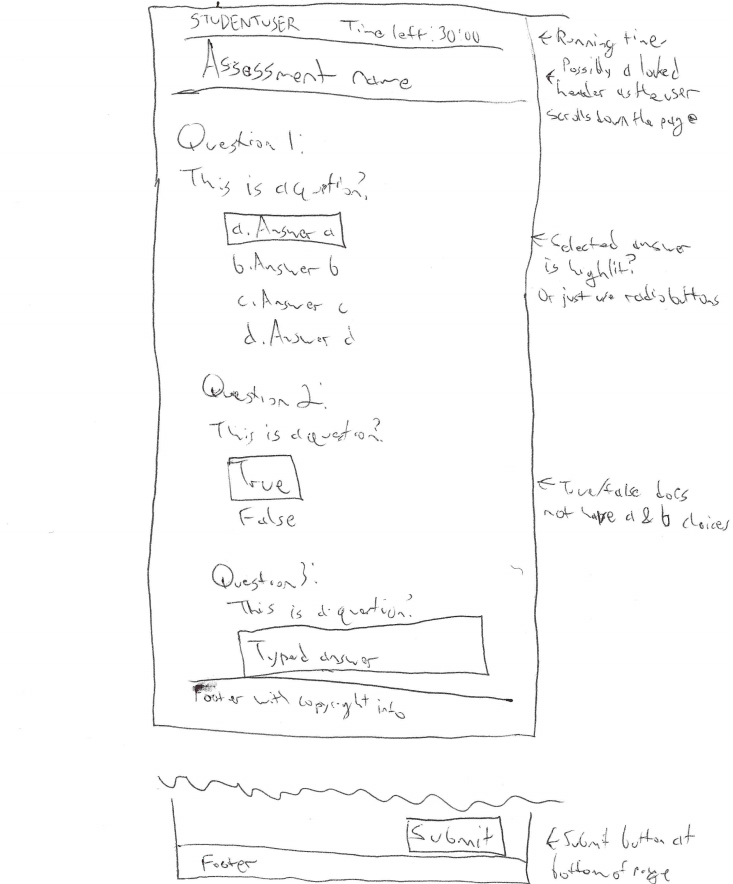 STUDENTUSER Time left: 30:00
Assessment name
← Running timer
← Possibly a locked
header as the user
scrolls down the page
Question 1:
This is a question?
a. Answer a
b. Answer b
c. Answer c
d. Answer d
← Selected answer
is highlit?
Or just use radio buttons
Question 2:
This is a question?
True
False
← True/false does
not have a & b choices
Question 3:
This is a question?
Typed answer
Footer with copyright info
Submit
Footer
← Submit button at
bottom of page